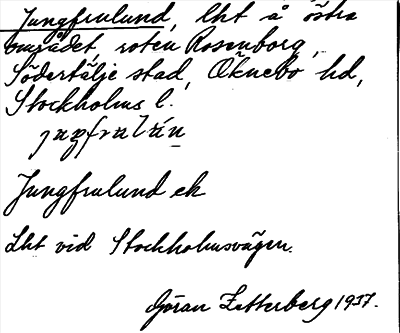 Jungfrulund, lht å östra
området, roten Rosenborg,
Södertälje stad, Öknebo hd,
Stockholms l.
Jungfrulund ek
Lht vid Stockholmsvägen.
Göran Zetterberg 1937.